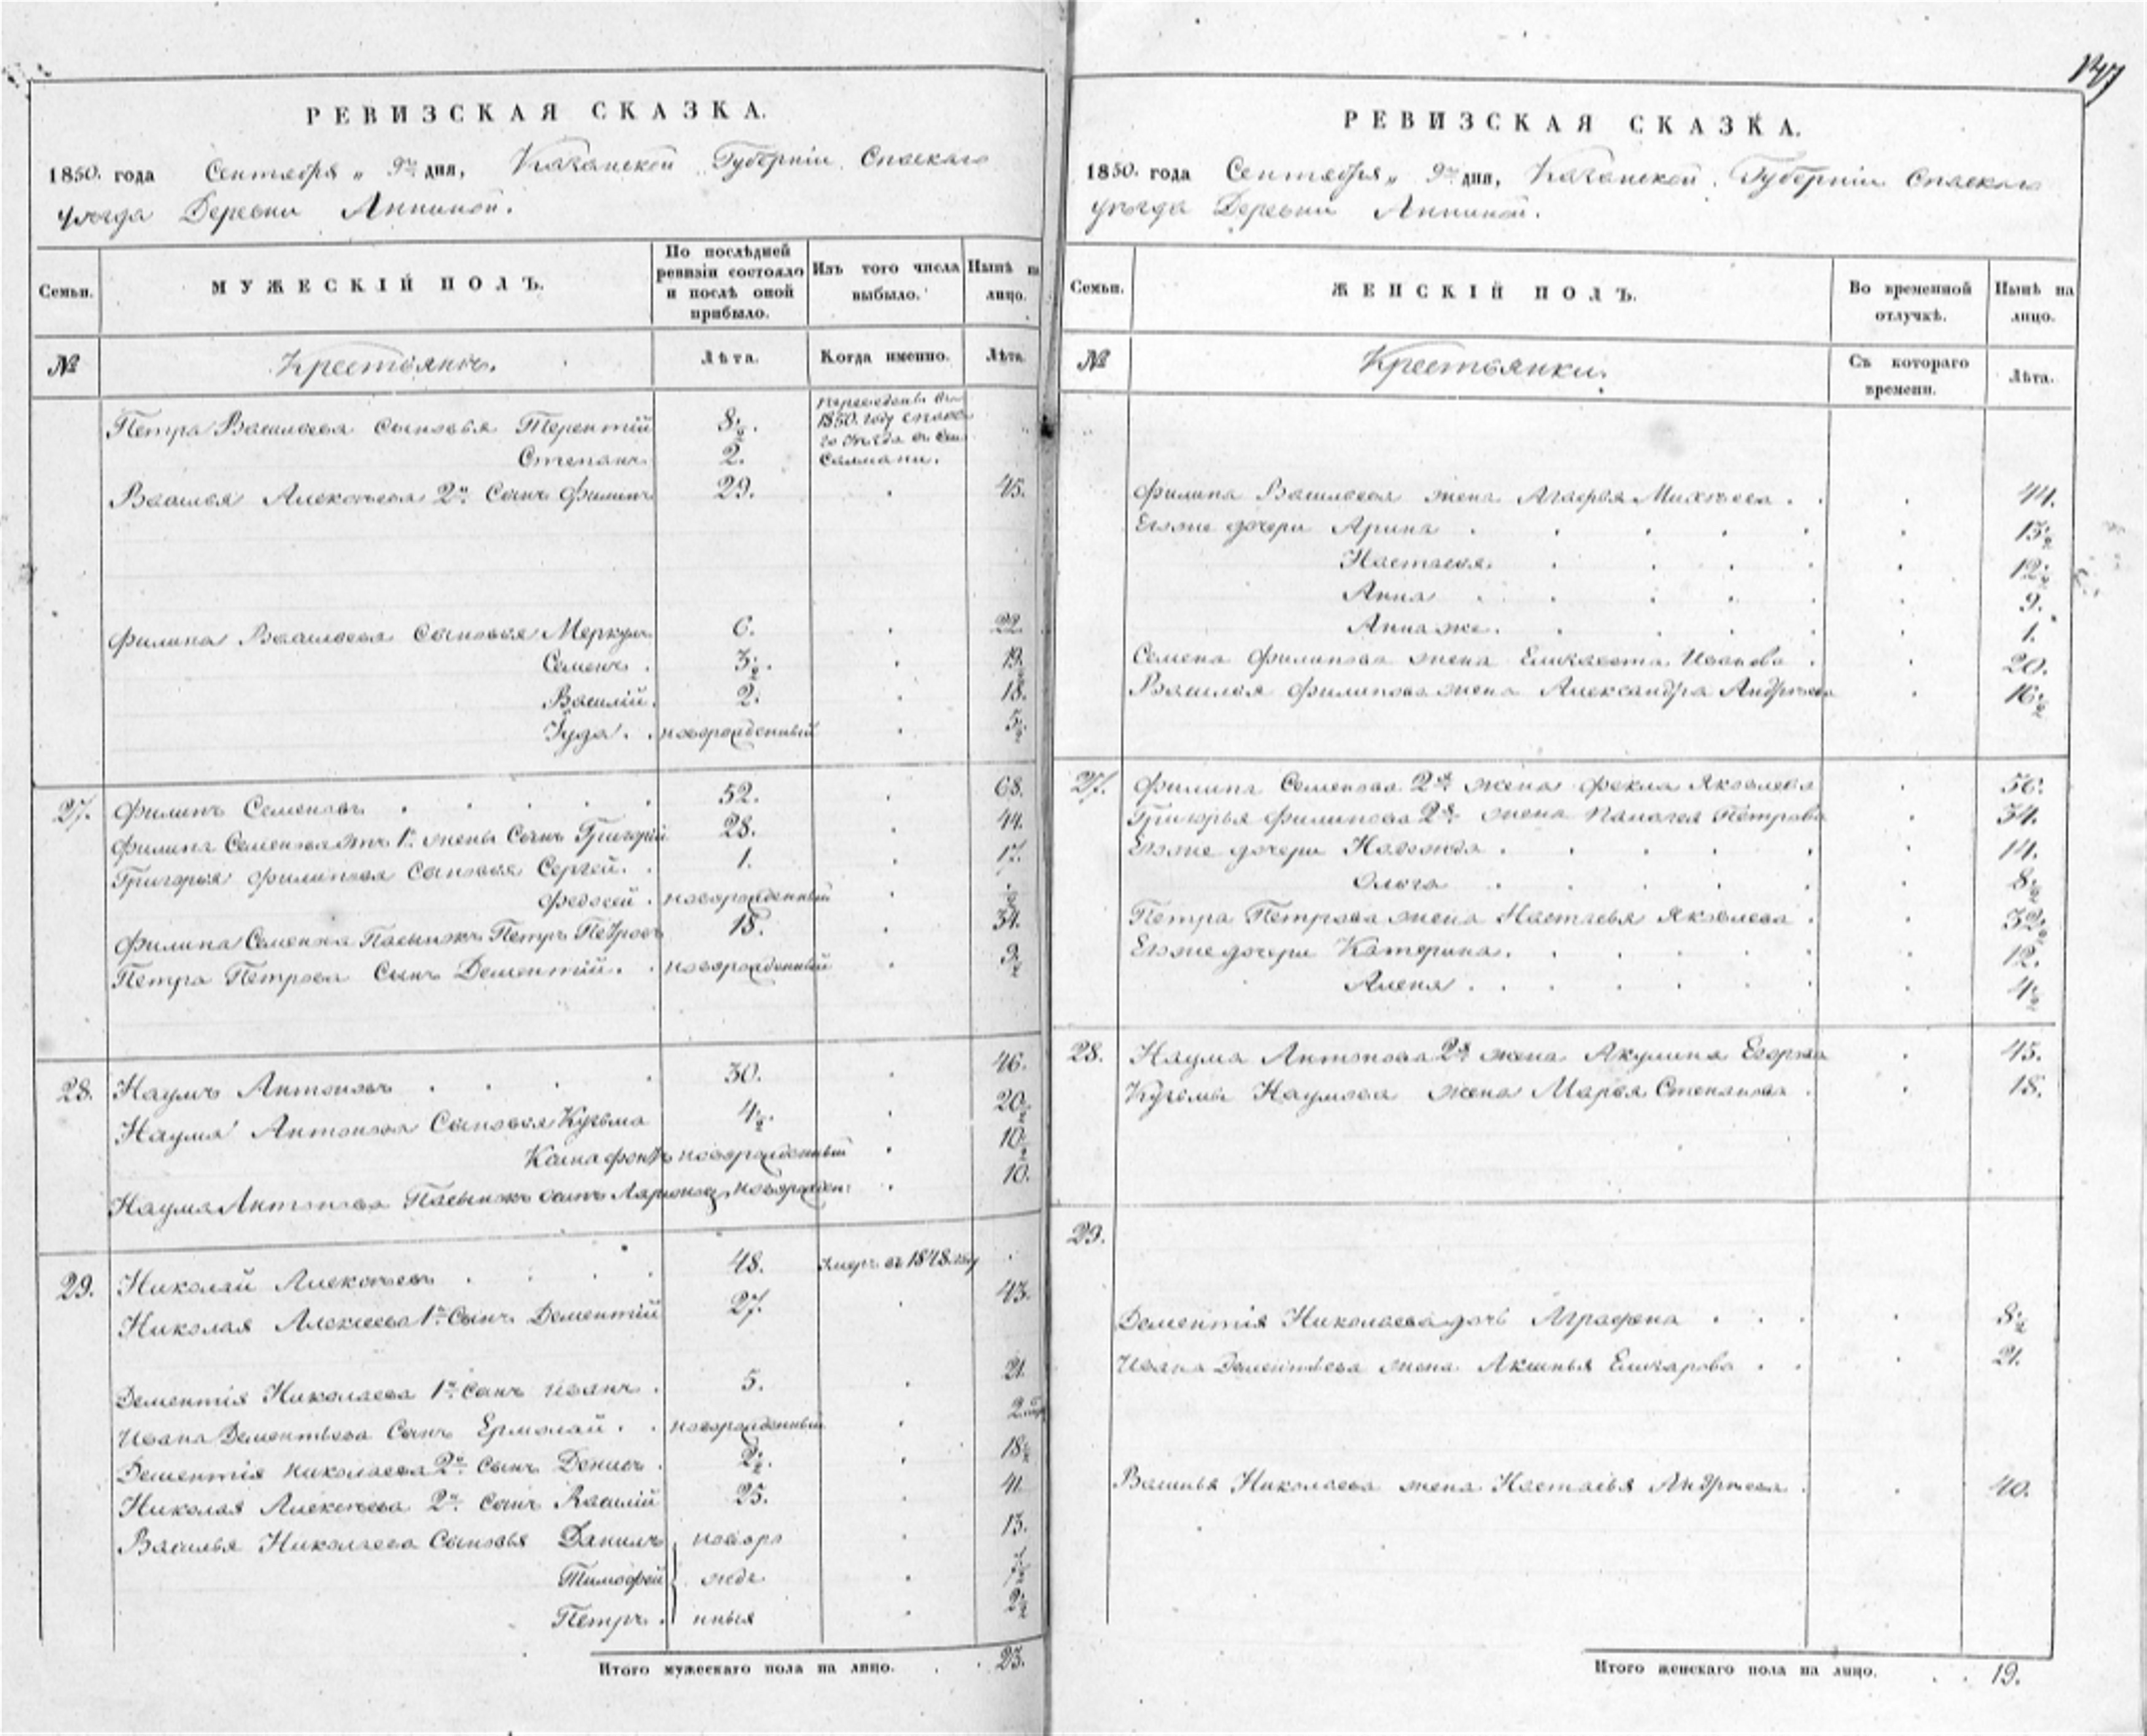 147
РЕВИЗСКАЯ СКАЗКА.
1850. года Сентября „ 9го дня, Казанской Губерніи Спаскаго
уѣзда Деревни Анниной.
Семьи.
МУЖЕСКІЙ ПОЛЪ.
По послѣдней ревизіи состояло и послѣ оной прибыло.
Изъ того числа выбыло.
Нынѣ на лицо.
№
Крестьянъ.
Лѣта.
Когда именно.
Лѣта.
Петра Васильева сыновья Терентій 8½.
Степанъ 2.
1850. году
Василья Алексѣева 2й Сынъ Филипъ 29. 45.
Филипа Васильева Сыновья Меркулъ 6. 22.
Семенъ 3½. 19½
Василій. 2. 18.
Іуда новорожденный 5½
27. Филипъ Семеновъ 52. 68.
Филипа Семенова отъ 1й жены Сынъ Григорій 28. 44.
Григорья Филипова Сыновья Сергей. 1. 17.
Федосей новорожденный ½
Филипа Семенова Пасынокъ Петръ Петровъ 18. 34.
Петра Петрова Сынъ Дементій. новорожденный 9½
28. Наумъ Антоновъ 30. 46.
Наума Антонова Сыновья Кузьма 4½. 20½
новорожденный 10½
Наума Антонова Пасынокъ новорожден: 10.
29. Николай Алексѣевъ 48. умеръ въ 1848. году
Николая Алексѣева 1й Сынъ Дементій 27. 43.
Дементія Николаева 1й сынъ Иванъ 5. 21.
Ивана Дементьева Сынъ Ермолай новорожденный 2
Дементія Николаева 2й Сынъ Денисъ 2½. 18½
Николая Алексѣева 2й сынъ Василій 25. 41.
Василья Николаева Сыновья Данилъ новоро 13.
Тимофей жде
Петръ. нныя 2½
Итого мужескаго пола на лицо. 23.
РЕВИЗСКАЯ СКАЗКА.
1850. года Сентября „ 9го дня, Казанской Губерніи Спаскаго
уѣзда Деревни Анниной.
Семьи.
ЖЕНСКІЙ ПОЛЪ.
Во временной отлучкѣ.
Нынѣ на лицо.
№
Крестьянки.
Съ котораго времени.
Лѣта.
Филипа Васильева жена Агафья Михѣева 44.
Егоже дочери Арина 13½
Настасья 12½
Анна 9.
Анна же. 1.
Семена Филипова жена Елисавета Иванова 20.
Василья Филипова жена Александра Андрѣева 16½
27. Филипа Семенова 2я жена Фекла Яковлева 56.
Григорья Филипова 2я жена Палагея Петрова 34.
Егоже дочери Надежда 14.
Ольга 8½
Петра Петрова жена Настасья Яковлева 32½
Егоже дочери Катерина. 12.
Алена 4½
28. Наума Антонова 2я жена Акулина Егорова 45.
Кузьмы Наумова жена Марья Степанова 18.
29.
Дементія Николаева дочь Аграфена 8½
Ивана Дементьева жена Аксинья Елизарова 21.
Василья Николаева жена Настасья Андрѣева 40.
Итого женскаго пола на лицо. 19.